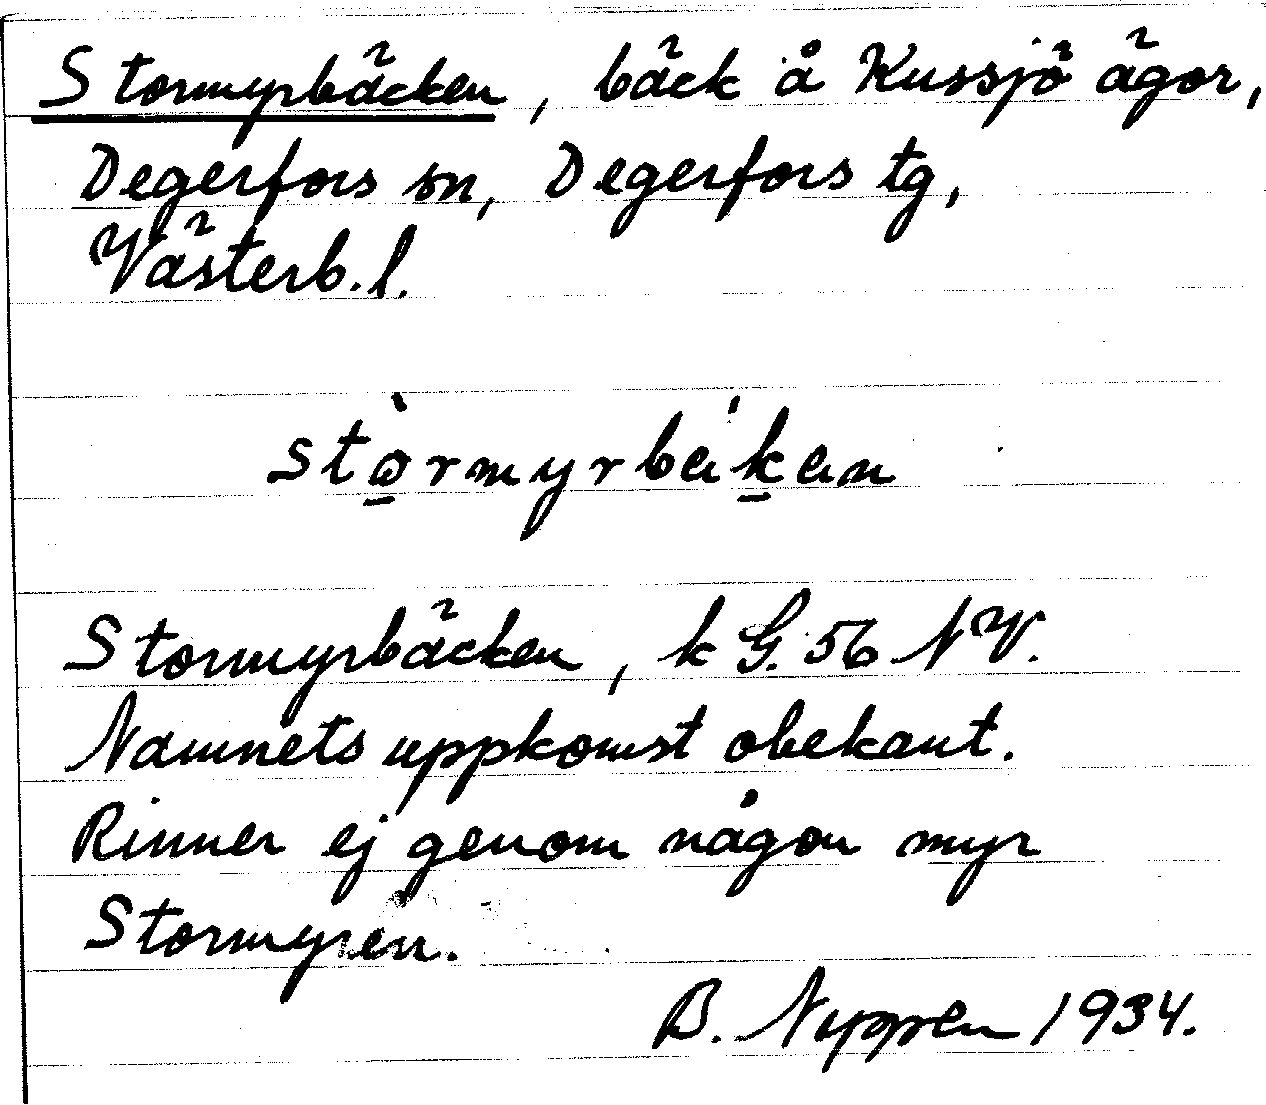 Stormyrbäcken, bäck å Kussjö ägor,
Degerfors sn, Degerfors tg,
Västerb. l.
stòrmyrbéken
Stormyrbäcken, k G. 56 NV.
Namnets uppkomst obekant.
Rinner ej genom någon myr
Stormyren.
B. Nyppen 1934.